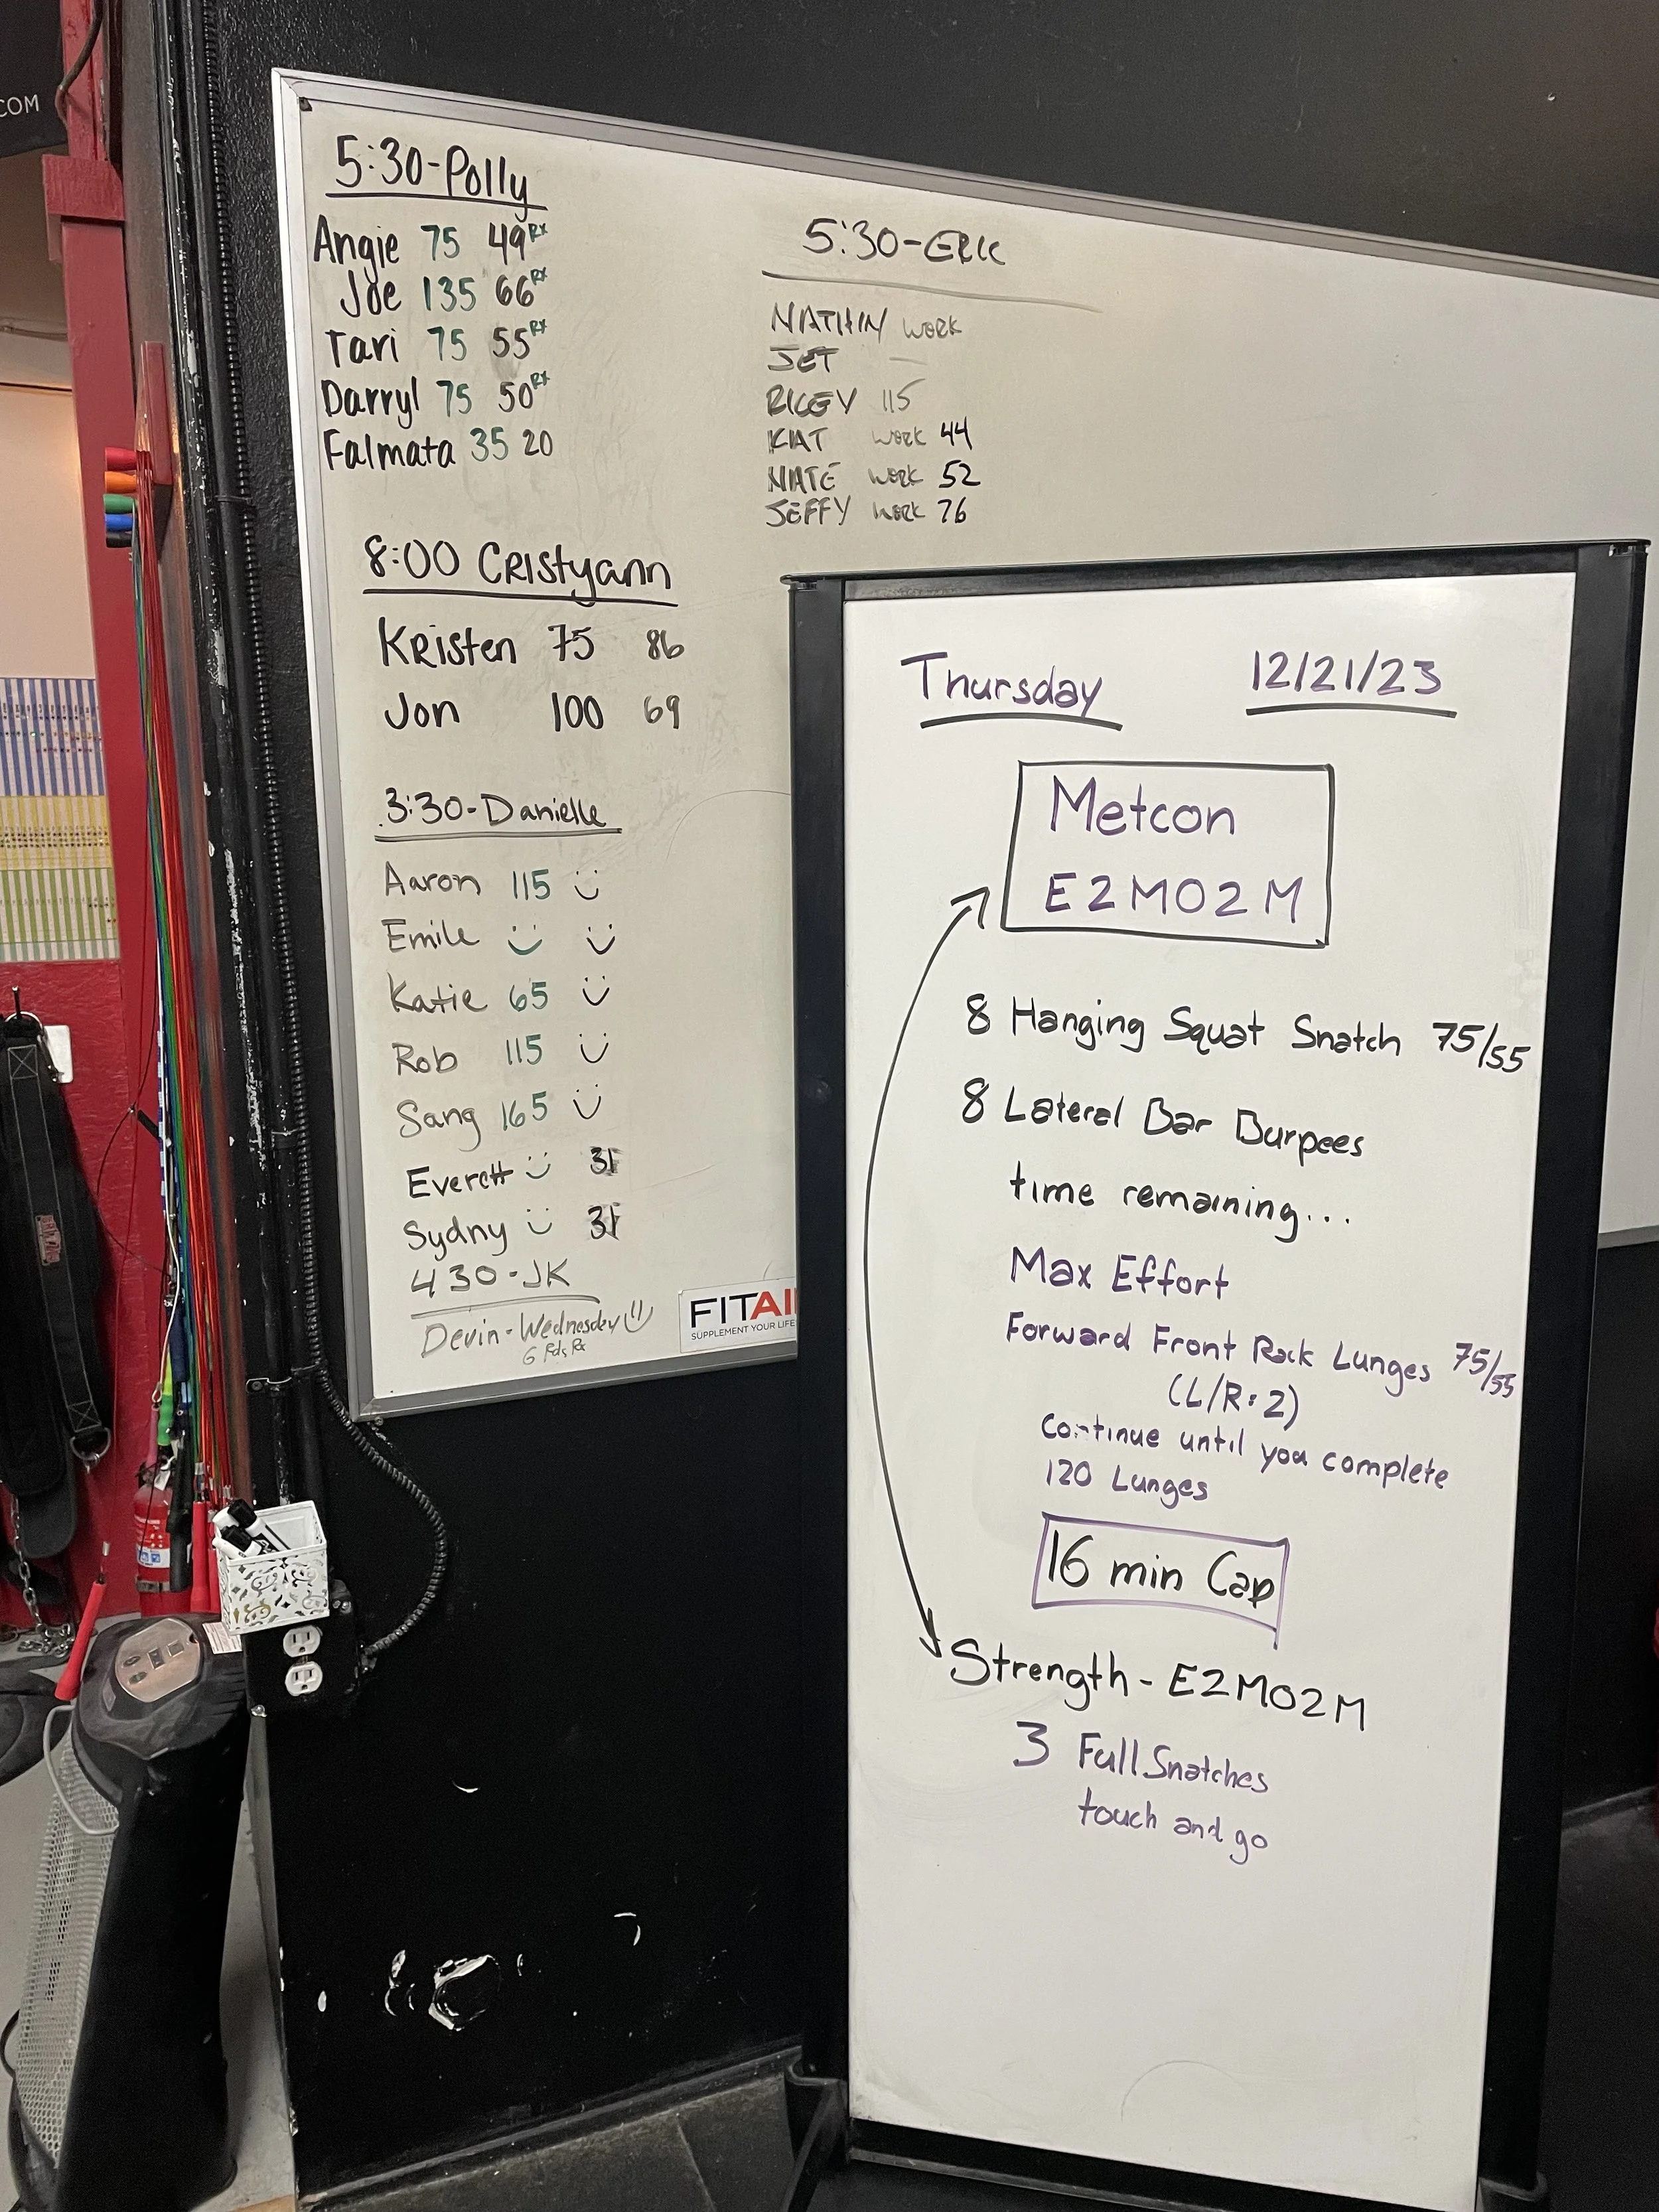 COM
5:30-Polly
Angie 75 49 Rx
Joe 135 66 Rx
Tari 75 55 Rx
Darryl 75 50 Rx
Falmata 35 20
8:00 CRIStyann
KRisten 75 86
Jon 100 69
3:30-Danielle
Aaron 115
Emile
Katie 65
Rob 115
Sang 165
Everett 31
Sydny 31
430-JK
Devin-Wednesday
6 Rds Rx
FITAI
SUPPLEMENT YOUR LIFE
5:30-ERIC
WORK
JET —
115
KIAT WORK 44
NATE WORK 52
JEFFY WORK 76
Thursday 12/21/23
Metcon
E2MO2M
8 Hanging Squat Snatch 75/55
8 Lateral Bar Burpees
time remaining...
Max Effort
Forward Front Rack Lunges 75/55
(L/R=2)
Continue until you complete
120 Lunges
16 min Cap
Strength - E2MO2M
3 Full Snatches
touch and go